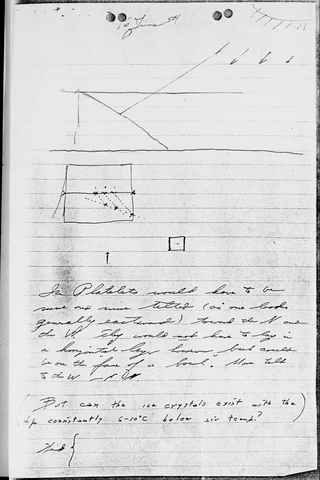 16 June
Ice Platelets would have to be
more and more tilted (as one looks
generally eastward) toward the N and
the W. They would not have to be in
a horizontal layer however, but could
be on the face of a bowl. More tilt
to the W
(But can the ice crystals exist with the
dp consistently 6-10°C below air temp.?)